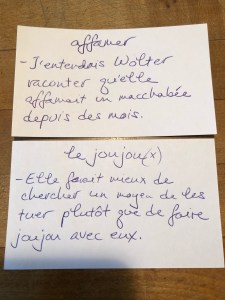 affamer
- J'entendais Wolter
raconter qu'elle
affamait un macchabée
depuis des mois.
le joujou(x)
- Elle ferait mieux de
chercher un moyen de les
tuer plutôt que de faire
joujou avec eux.